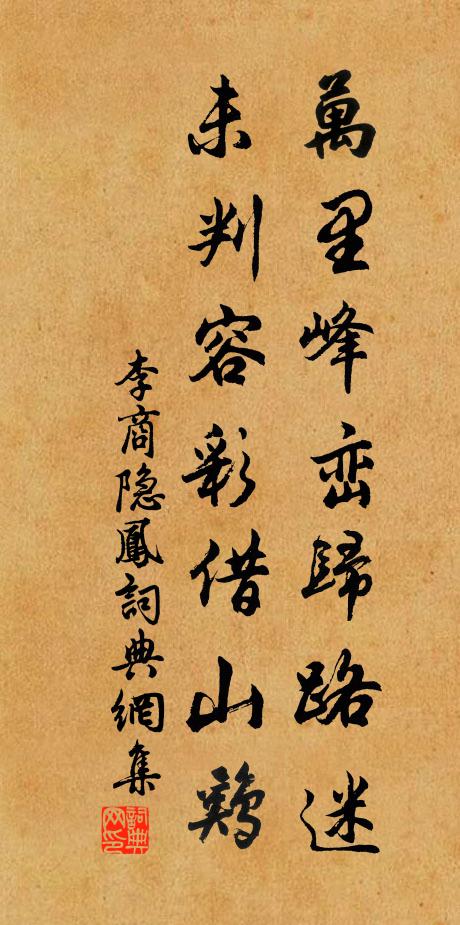 萬里峰巒歸路迷
未判容彩借山鷄
李商隐鳳詞典網集
詞典网印